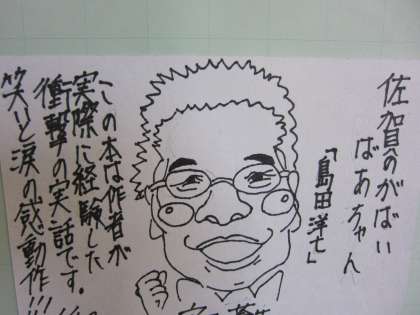 佐賀のがばい
ばあちゃん
「島田洋七」
この本は作者が
実際に経験した
衝撃の実話です。
笑いと涙の感動作!!!